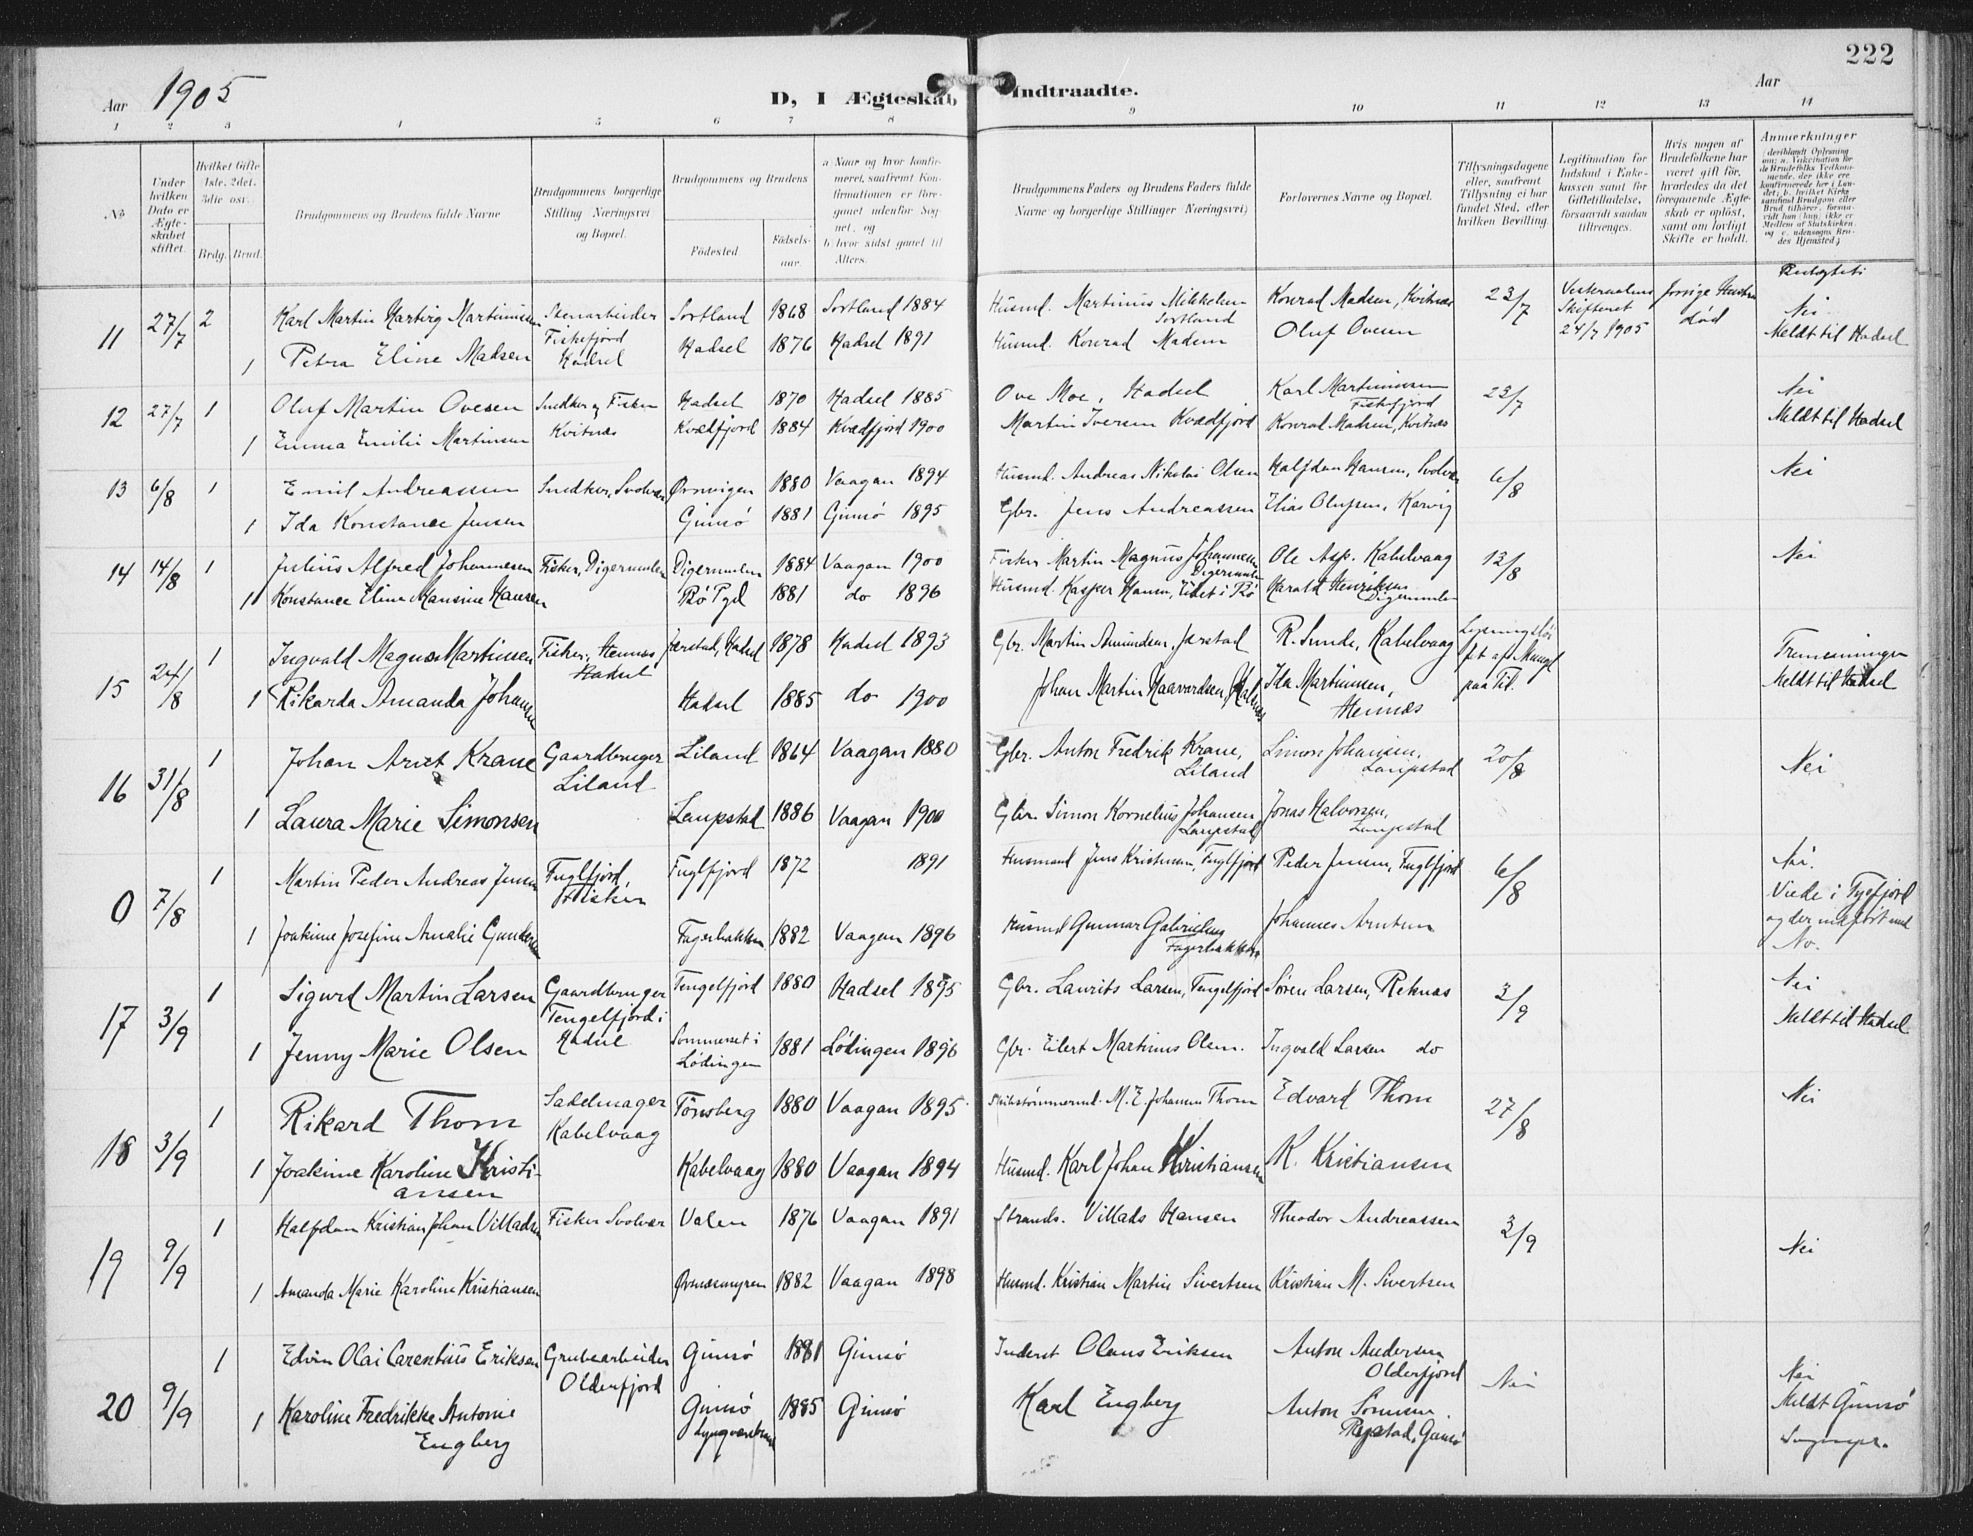 222
Aar 1905
D, I Ægteskab Indtraadte.
Aar
1 2 3 4 5 6 7 8 9 10 11 12 13 14
No
Under hvilken Dato er Ægteskabet stiftet.
Hvilket Gifte 1ste, 2det, 3die osv.
Brdg. Brud.
Brudgommens og Brudens fulde Navne
Brudgommens borgerlige Stilling Næringsvei og Bopæl.
Brudgommens og Brudens
Fødested
Fødselsaar.
a. Naar og hvor konfirmeret, saafremt Konfirmationen er foregaaet udenfor Sognet, og
b. hvor sidst gaaet til Alters.
Brudgommens Faders og Brudens Faders fulde Navne og borgerlige Stillinger Næringsvei)
Forlovernes Navne og Bopæl.
Tillysningsdagene eller, saafremt Tillysning ei har fundet Sted, efter hvilken Bevilling.
Legitimation for Indskud i Enkekassen samt for Giftetilladelse, forsaavidt saadan tiltrænges.
Hvis nogen af Brudefolkene har været gift før, hvorledes da det foregaaende Ægteskab er opløst, samt om lovligt Skifte er holdt.
Anmærkninger
11 27/7 2 Karl Martin Hartvig Martinussen Stenarbeider Sortland 1868 Sortland 1884 Husmd. Martinus Mikkelsen Sortland Konrad Madsen, Kvitnæs 23/7 Vesteraalens Skifteret 24/7 1905 forrige Hustru død Nei
1 Petra Eline Madsen Fiskefjord Hadsel Hadsel 1876 Hadsel 1891 Husmd. Konrad Madsen Oluf Ovesen Meldt til Hadsel
12 27/7 1 Oluf Martin Ovesen Snedker og Fisker Hadsel 1870 Hadsel 1885 Ove Moe, Hadsel Karl Martinussen Fiskefjord 23/7 Nei
1 Emma Emilie Martinsen Kvitnæs Kvædfjord 1884 Kvædfjord 1900 Martin Iversen Kvædfjord Konrad Madsen, Kvitnæs Meldt til Hadsel
13 6/8 1 Emil Andreassen Snedker, Svolvær Ørnvigen 1880 Vaagan 1894 Husmd. Andreas Nikolai Olsen Halfdan Hansen, Svolvær 6/8 Nei
1 Ida Konstance Jensen Gimsø 1881 Gimsø 1895 Gbr. Jens Andreassen Elias Olufsen, Kavig
14 14/8 1 Julius Alfred Johannesen Fisker, Digermulen Digermulen 1884 Vaagan 1900 Fisker Martin Magnus Johannesen Digermulen Ole Asp. Kabelvaag 13/8 Nei
1 Konstance Eline Hansine Hansen Bø Pgd 1881 do 1896 Husmd. Kasper Hansen, Eidet i Bø Harald Henriksen Digermulen
15 24/8 1 Ingvald Magnus Martinsen Fisker, Hennæs Hadsel Jærstad, Hadsel 1878 Hadsel 1893 Gbr. Martin Amundsen, Jærstad R. Sunde, Kabelvaag Tremenninger
1 Rikarda Amanda Johansen Hadsel 1885 do 1900 Johan Martin Haavardsen, Ida Martinusen, Hennæs paa Tid. Meldt til Hadsel
16 31/8 1 Johan Arnt Krane Gaardbruger Liland Liland 1864 Vaagan 1880 Gbr. Anton Fredrik Krane, Liland Simon Johansen, Laupstad 20/8 Nei
1 Laura Marie Simonsen Laupstad 1886 Vaagan 1900 Gbr. Simon Kornelius Johansen Laupstad Jonas Halvorsen, Laupstad
0 7/8 1 Martin Peder Andreas Jensen Fuglfjord Fisker Fuglfjord 1872 1891 Husmand Jens Kristensen, Fuglfjord Peder Jensen, Fuglfjord 6/8 Nei.
1 Joakime Josefine Amalie Gundersen Fagerbakken 1882 Vaagan 1896 Husmd Gunnar Gabrielsen Fagerbakken Johannes Arntsen Viede i Tysfjord og der indført med No.
17 3/9 1 Sigurd Martin Larsen Gaardbruger Tengelfjord i Hadsel Tengelfjord 1880 Hadsel 1895 Gbr. Laurits Larsen, Tengelfjord Søren Larsen, Reknæs 3/9 Nei
1 Jenny Marie Olsen Sommerset i Lødingen 1881 Lødingen 1896 Gbr. Eilert Martinus Olsen. Ingvald Larsen do Meldt til Hadsel
18 3/9 1 Rikard Thom Sadelmager Kabelvaag Tønsberg 1880 Vaagan 1895 Skibstømmermd. M. E. Johansen Thom Edvard Thom 27/8 Nei
1 Joakime Karoline Kristiansen Kabelvaag 1880 Vaagan 1894 Husmd. Karl Johan Kristiansen K. Kristiansen
19 9/9 1 Halfdan Kristian Johan Villadsen Fisker Svolvær Valen 1876 Vaagan 1891 Strands. Villads Hansen Theodor Andreassen 3/9 Nei
1 Amanda Marie Karoline Kristiansen Ørnæsmyren 1882 Vaagan 1898 Husmd. Kristian Martin Sivertsen Kristian M. Sivertsen
20 9/9 1 Edvin Olai Carentius Eriksen Grubearbeider Olderfjord Gimsø 1881 Gimsø Inderst Olaus Eriksen Anton Andersen Olderfjord Nei Nei
1 Karoline Fredrikke Antonie Engberg Gimsø 1885 Gimsø Karl Engberg Anton Sørensen Meldt Gimsø Sognepr.